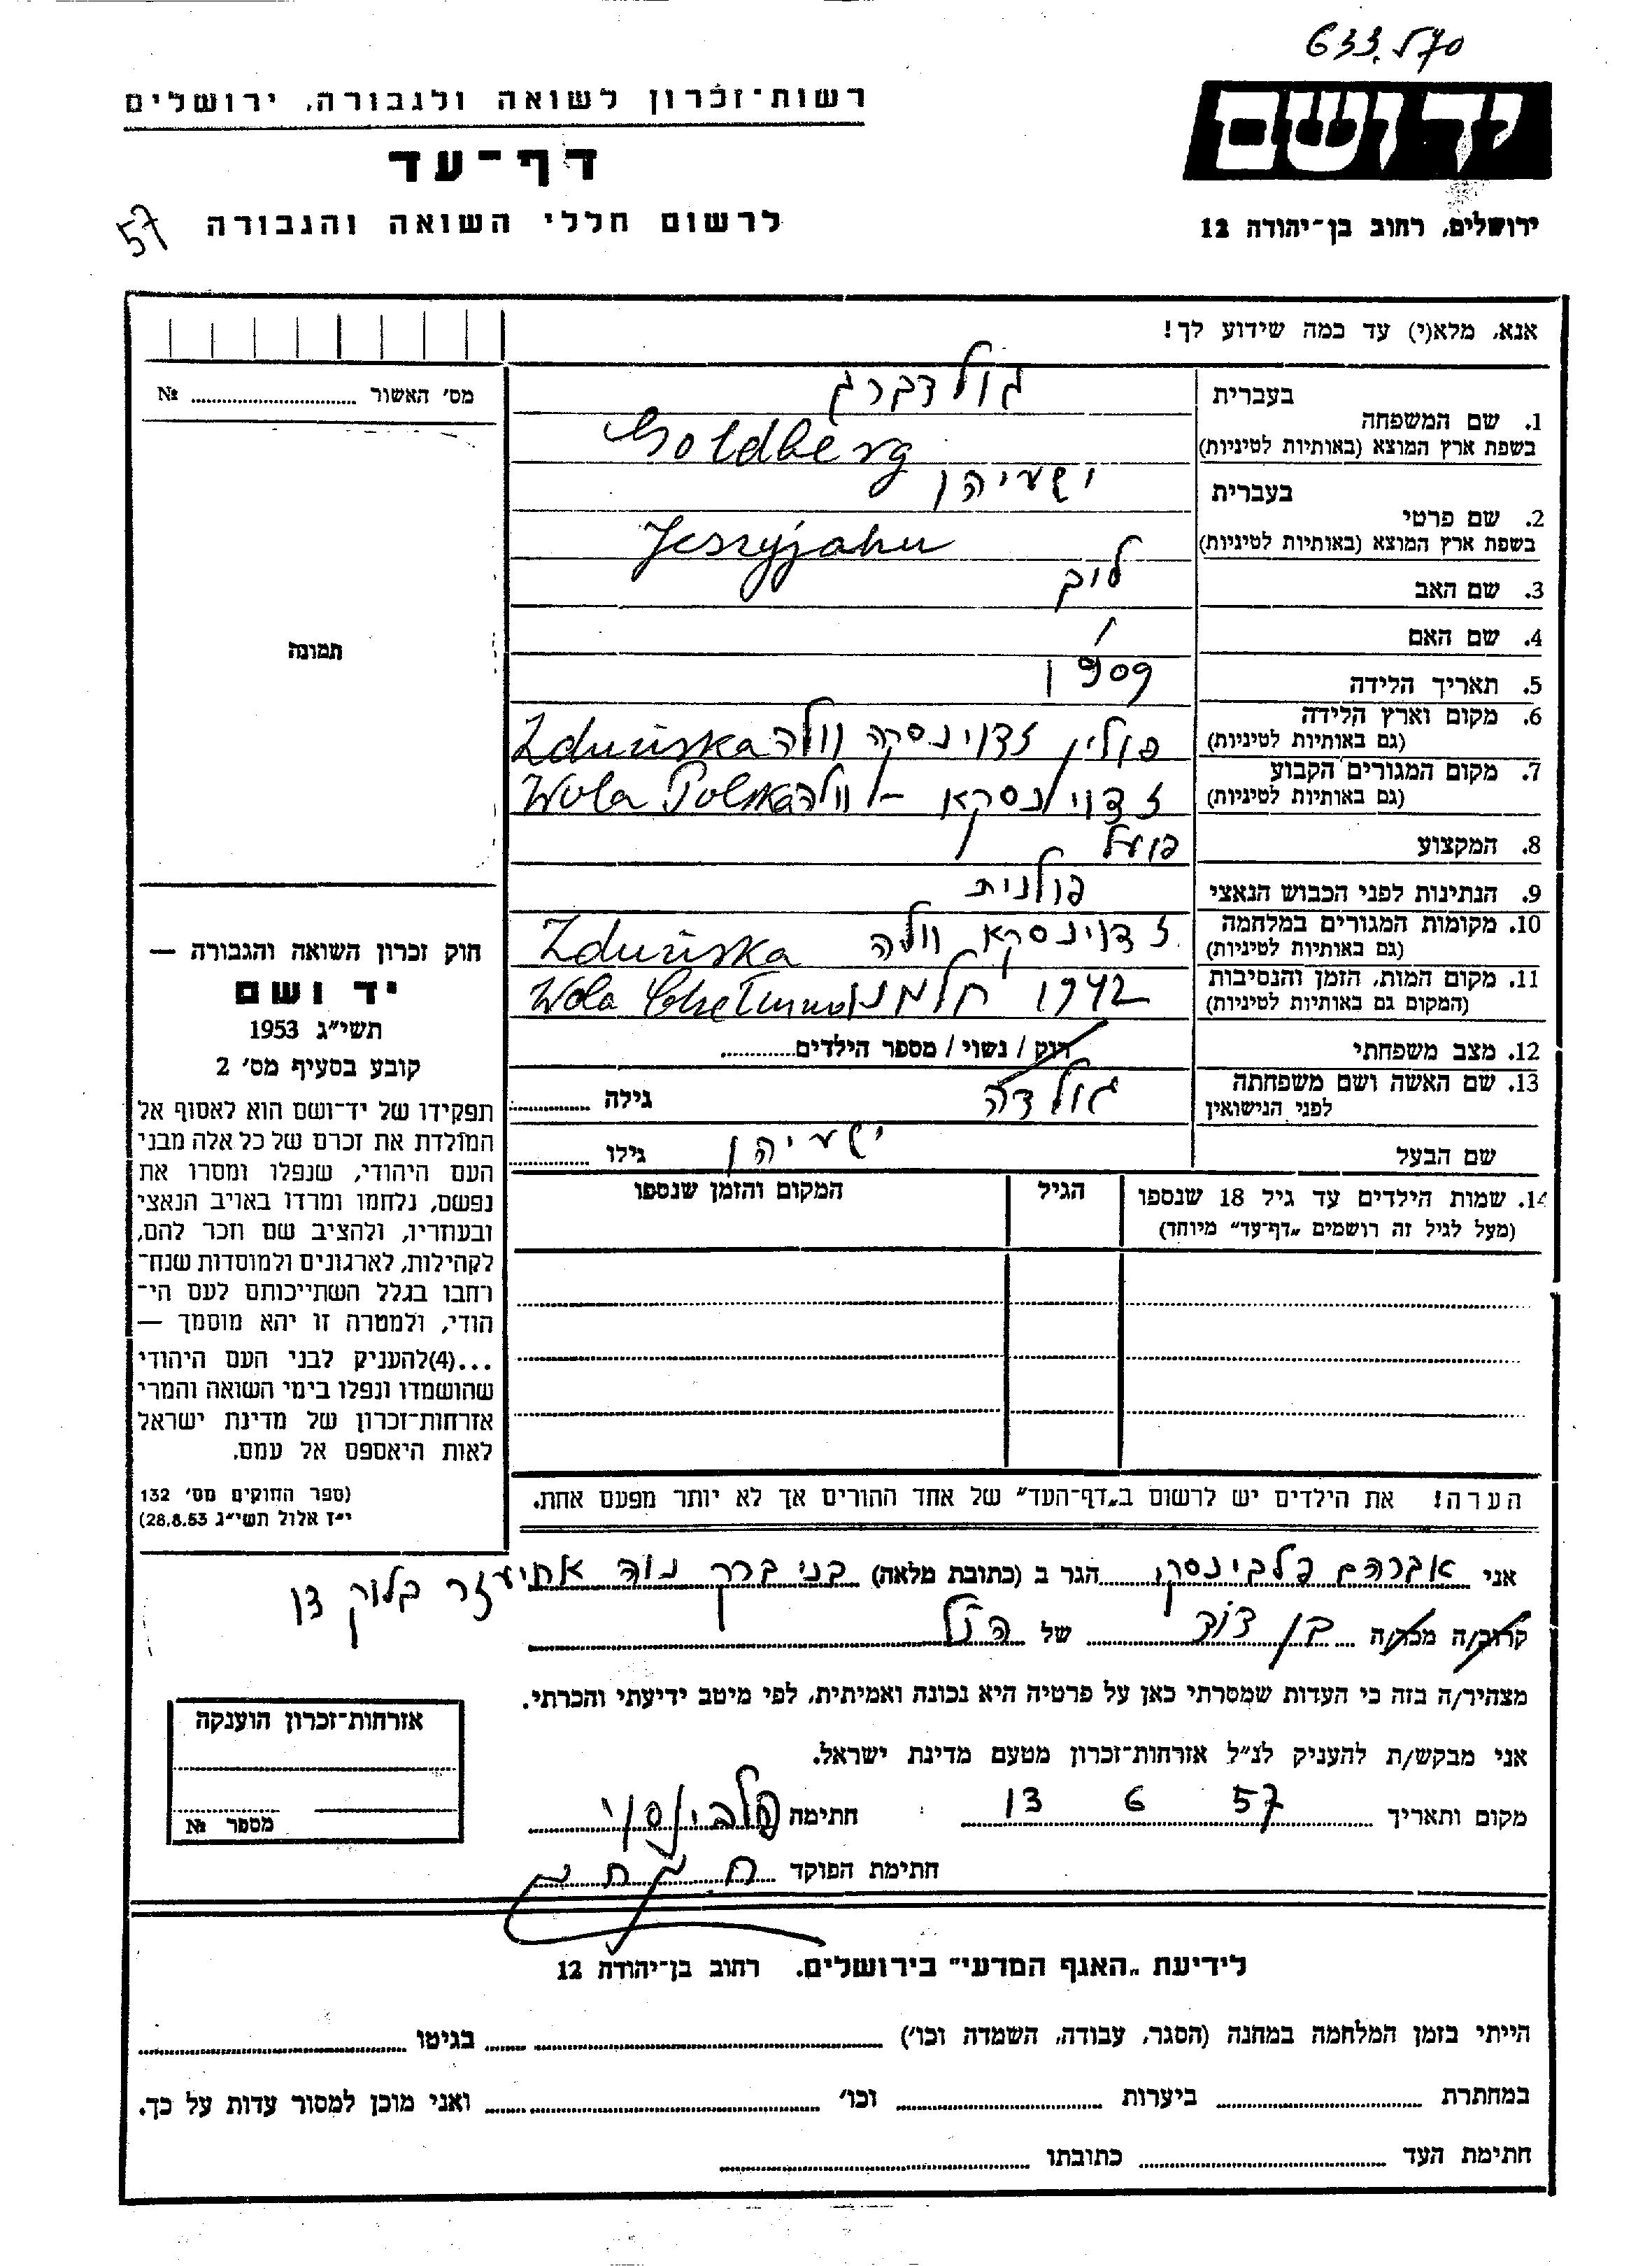 633.570
רשות-זכרון לשואה ולגבורה, ירושלים
יד ושם
דף-עד
לרשום חללי השואה והגבורה
57
ירושלים, רחוב בן-יהודה 12
אנא, מלא(י) עד כמה שידוע לך!
מס' האשור № ..........
תמונה
בעברית
גולדברג
1. שם המשפחה
בשפת ארץ המוצא (באותיות לטיניות)
Goldberg
בעברית
ישעיהו
2. שם פרטי
בשפת ארץ המוצא (באותיות לטיניות)
Jeszyjahu
3. שם האב
לייב
4. שם האם /
5. תאריך הלידה
1909
6. מקום וארץ הלידה
(גם באותיות לטיניות)
פולין זדוינסקה וולה Zduńska
7. מקום המגורים הקבוע
(גם באותיות לטיניות)
זדוינסקא - וולה Wola Polska
8. המקצוע
פועל
9. הנתינות לפני הכבוש הנאצי
פולנית
10. מקומות המגורים במלחמה
(גם באותיות לטיניות)
זדוינסקא וולה Zduńska
11. מקום המות, הזמן והנסיבות
(המקום גם באותיות לטיניות)
1942 חלמנו Wola
12. מצב משפחתי
רווק / נשוי / מספר הילדים ..........
13. שם האשה ושם משפחתה
לפני הנישואין
גולדה
גילה ..........
שם הבעל
ישעיהו
גילו ..........
14. שמות הילדים עד גיל 18 שנספו
(מעל לגיל זה רושמים "דף-עד" מיוחד)
הגיל
המקום והזמן שנספו
חוק זכרון השואה והגבורה —
יד ושם
תשי"ג 1953
קובע בסעיף מס' 2
תפקידו של יד-ושם הוא לאסוף אל
המולדת את זכרם של כל אלה מבני
העם היהודי, שנפלו ומסרו את
נפשם, נלחמו ומרדו באויב הנאצי
ובעוזריו, ולהציב שם וזכר להם,
לקהילות, לארגונים ולמוסדות שנח-
רחבו בגלל השתייכותם לעם הי-
הודי, ולמטרה זו יהא מוסמך —
...(4)להעניק לבני העם היהודי
שהושמדו ונפלו בימי השואה והמרי
אזרחות-זכרון של מדינת ישראל
לאות היאספם אל עמם.
(ספר החוקים מס' 132
י"ז אלול תשי"ג 28.8.53)
הערה! את הילדים יש לרשום ב"דף-העד" של אחד ההורים אך לא יותר מפעם אחת.
אני אברהם פלבינסקי הגר ב (כתובת מלאה) בני ברק נוה אחיעזר בלוק דן
קרוב/ה מכר/ה בן דוד של הנ"ל
מצהיר/ה בזה כי העדות שמסרתי כאן על פרטיה היא נכונה ואמיתית, לפי מיטב ידיעתי והכרתי.
אני מבקש/ת להעניק לנ"ל אזרחות-זכרון מטעם מדינת ישראל.
מקום ותאריך 13 6 57
חתימה פלבינסקי
חתימת הפוקד
אזרחות-זכרון הוענקה
מספר №
לידיעת "האגף המדעי" בירושלים. רחוב בן-יהודה 12
הייתי בזמן המלחמה במחנה (הסגר, עבודה, השמדה וכו') .......... בגיטו ..........
במחתרת .......... ביערות .......... וכו' .......... ואני מוכן למסור עדות על כך.
חתימת העד .......... כתובתו ..........